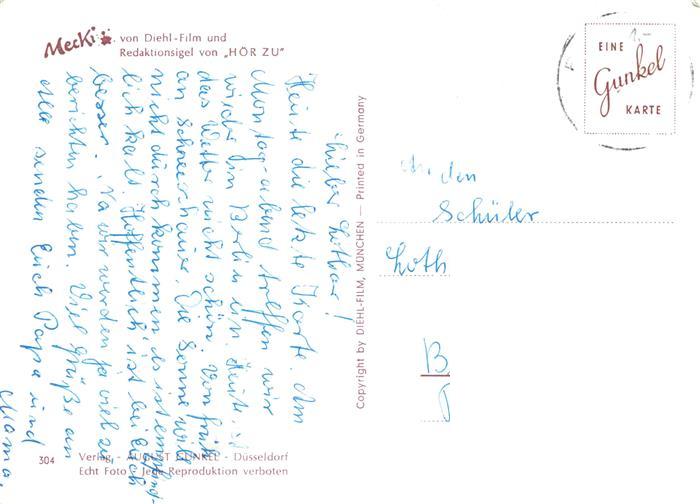 Mecki von Diehl-Film und
Redaktionsigel von „HÖR ZU"
EINE
Gunkel
KARTE
1.-
Lieber Lothar!
Heute die letzte Karte. Am
Montag-abend treffen wir
wieder in Berlin ein. Heute ist
das Wetter nicht schön. Von früh
an Schneeschauer. Die Sonne will
nicht durchkommen, es ist empfind-
lich kalt. Hoffentlich ist bei Euch
besser. Na wir werden ja viel zu
berichten haben. Viel Grüße an
alle senden Euch Papa und
Mama.
An den
Schüler
Loth
B
Copyright by DIEHL-FILM, MÜNCHEN — Printed in Germany
304
Verlag - AUGUST GUNKEL - Düsseldorf
Echt Foto - Jede Reproduktion verboten